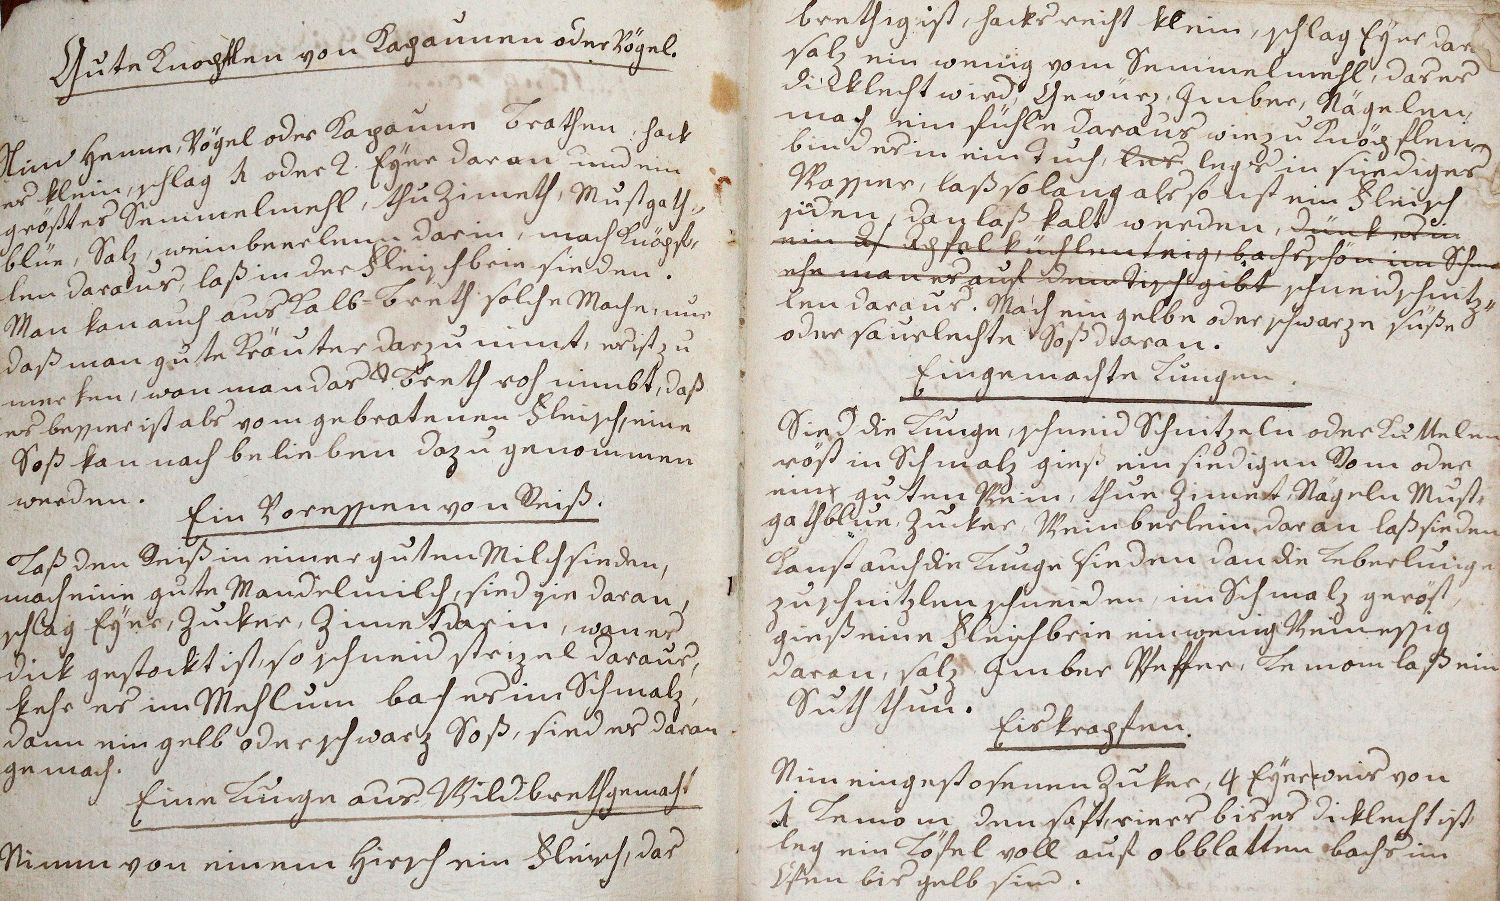 Gute Knöpflen von Kapaunen oder Vögel.
Nim Henne, Vögel oder Kapaune Brathen, hack
es klein, schlag 1 oder 2. Eÿer daran und ein
größtes Semmelmehl, thu Zimeth, Musgath-
blüe, Salz, weinbeerlen darin, mach Knöpf-
len daraus, laß in der Fleischbrie sieden.
Man kan auch aus Kalb-Breth solche Mache, nur
daß man gute Kräuter darzu nimt, es ist zu
merken, wan man das Breth roh nimbt, daß
es besser ist als vom gebratenen Fleisch, eine
Soß kan nach belieben dazu genommen
werden.
Ein Voressen von Reiß.
Laß den Reiß in einer guten Milch sieden,
mach eine gute Mandelmilch, sied sie daran,
schlag Eÿer, Zucker, Zimet darin, wan es
dick gestockt ist, so schneid strizel daraus,
kehr es im Mehl um bach es im Schmalz,
dann ein gelb oder schwarz Soß, sied es daran
gemach.
Eine Lunge aus Wildbreth gemacht
Nimm von einem Hirsch ein Fleisch, das
brethig ist, hacks recht klein, schlag Eÿer dar
salz ein wenig vom Semmelmehl, das es
dicklecht wird, Gewürz, Imber, Nägelen,
mach ein fühle daraus wie zu Knöpflen
bind es in ein Tuch, legs in siediges
Wasser, laß so lang als sonst ein Fleisch
siden, dan laß kalt werden, dunk es in
ein Apfelküchlenteig, bachs schön im Schm
ehe man es auf den Tisch gibt schneid schnitz-
len daraus. Mach ein gelbe oder schwarze süße
oder saurlechte Soß daran.
Eingemachte Lungen.
Sied die Lunge, schneid Schnitzeln oder Kuttelen
röst in Schmalz gieß ein siedigen Rom oder
ein guten Wein, thue Zimet, Nägeln Must-
gathblüe, Zucker, Weinberlein daran laß sieden
Kanst auch die Lunge sieden dan die Leberlunge
zu schnitzlen schneiden, im Schmalz geröst,
gieß eine Fleischbrie ein wenig Weinessig
daran, salz Imber Pfeffer, Lemoni laß ein
Suth thun.
Eiskrapfen.
Nim ein gestosenen Zuker, 4 Eÿerweis von
1 Lemoni den saft, riers bis es dicklecht ist
leg ein Löfel voll auf obblatten bachs im
Ofen bis gelb sind.